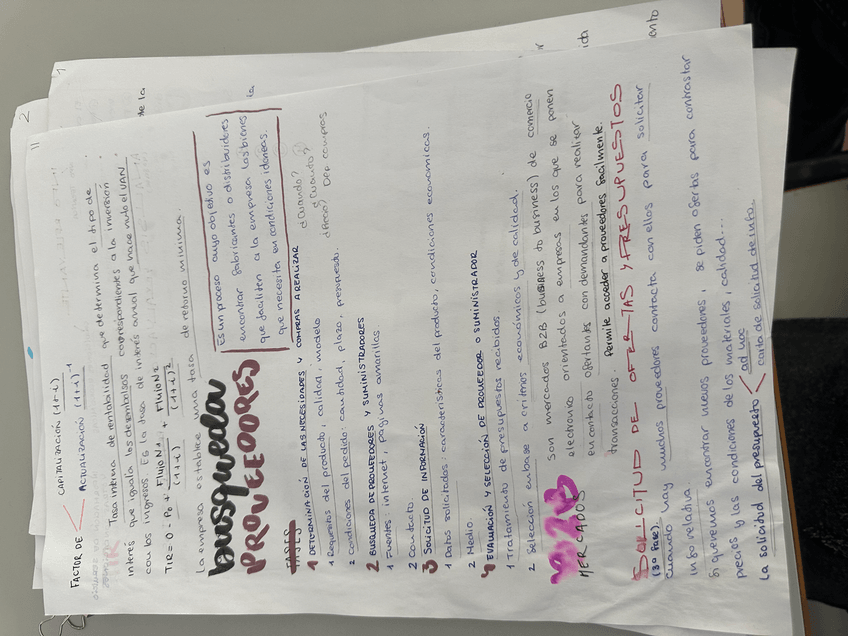 11
FACTOR DE < CAPITALIZACIÓN (1+i)
ACTUALIZACIÓN (1+i)⁻¹
Tasa interna de rentabilidad que determina el tipo de
interés que iguala los desembolsos correspondientes a la inversión
con los ingresos. Es la tasa de interés anual que hace nulo el VAN
TIR = 0 - P0 + FlujoN1 / (1+i) + FlujoN2 / (1+i)²
La empresa establece una tasa de retorno mínima.
BUSQUEDA
PROVEEDORES
Es un proceso cuyo objetivo es
encontrar fabricantes o distribuidores
que faciliten a la empresa los bienes
que necesita en condiciones idoneas.
FASES
1 DETERMINACIÓN DE LAS NECESIDADES Y COMPRAS A REALIZAR
¿Cuando?
¿Cuanto?
1 Requisitos del producto, calidad, modelo
2 Condiciones del pedido: cantidad, plazo, presupuesto
Dep compras
2 BUSQUEDA DE PROVEEDORES Y SUMINISTRADORES
1 Fuentes: internet, paginas amarillas
2 Contacto.
3 SOLICITUD DE INFORMACIÓN
1 Datos solicitados: características del producto, condiciones economicas.
2 Medio.
4 EVALUACIÓN Y SELECCIÓN DE PROVEEDOR O SUMINISTRADOR
1 Tratamiento de presupuestos recibidos
2 Selección en base a criterios económicos y de calidad.
B2B
MERCADOS
Son mercados B2B (business to business) de comercio
electronico orientados a empresas en los que se ponen
en contacto ofertantes con demandantes para realizar
transacciones. Permite acceder a proveedores facilmente.
SOLICITUD DE OFERTAS Y PRESUPUESTOS
(3ª Fase).
Cuando hay muchos proveedores contacta con ellos para solicitar
info relativa.
Si queremos encontrar nuevos proveedores, se piden ofertas para contrastar
precios y las condiciones de los materiales, calidad...
La solicitud del presupuesto < ad hoc
carta de solicitud de info.
2
de la